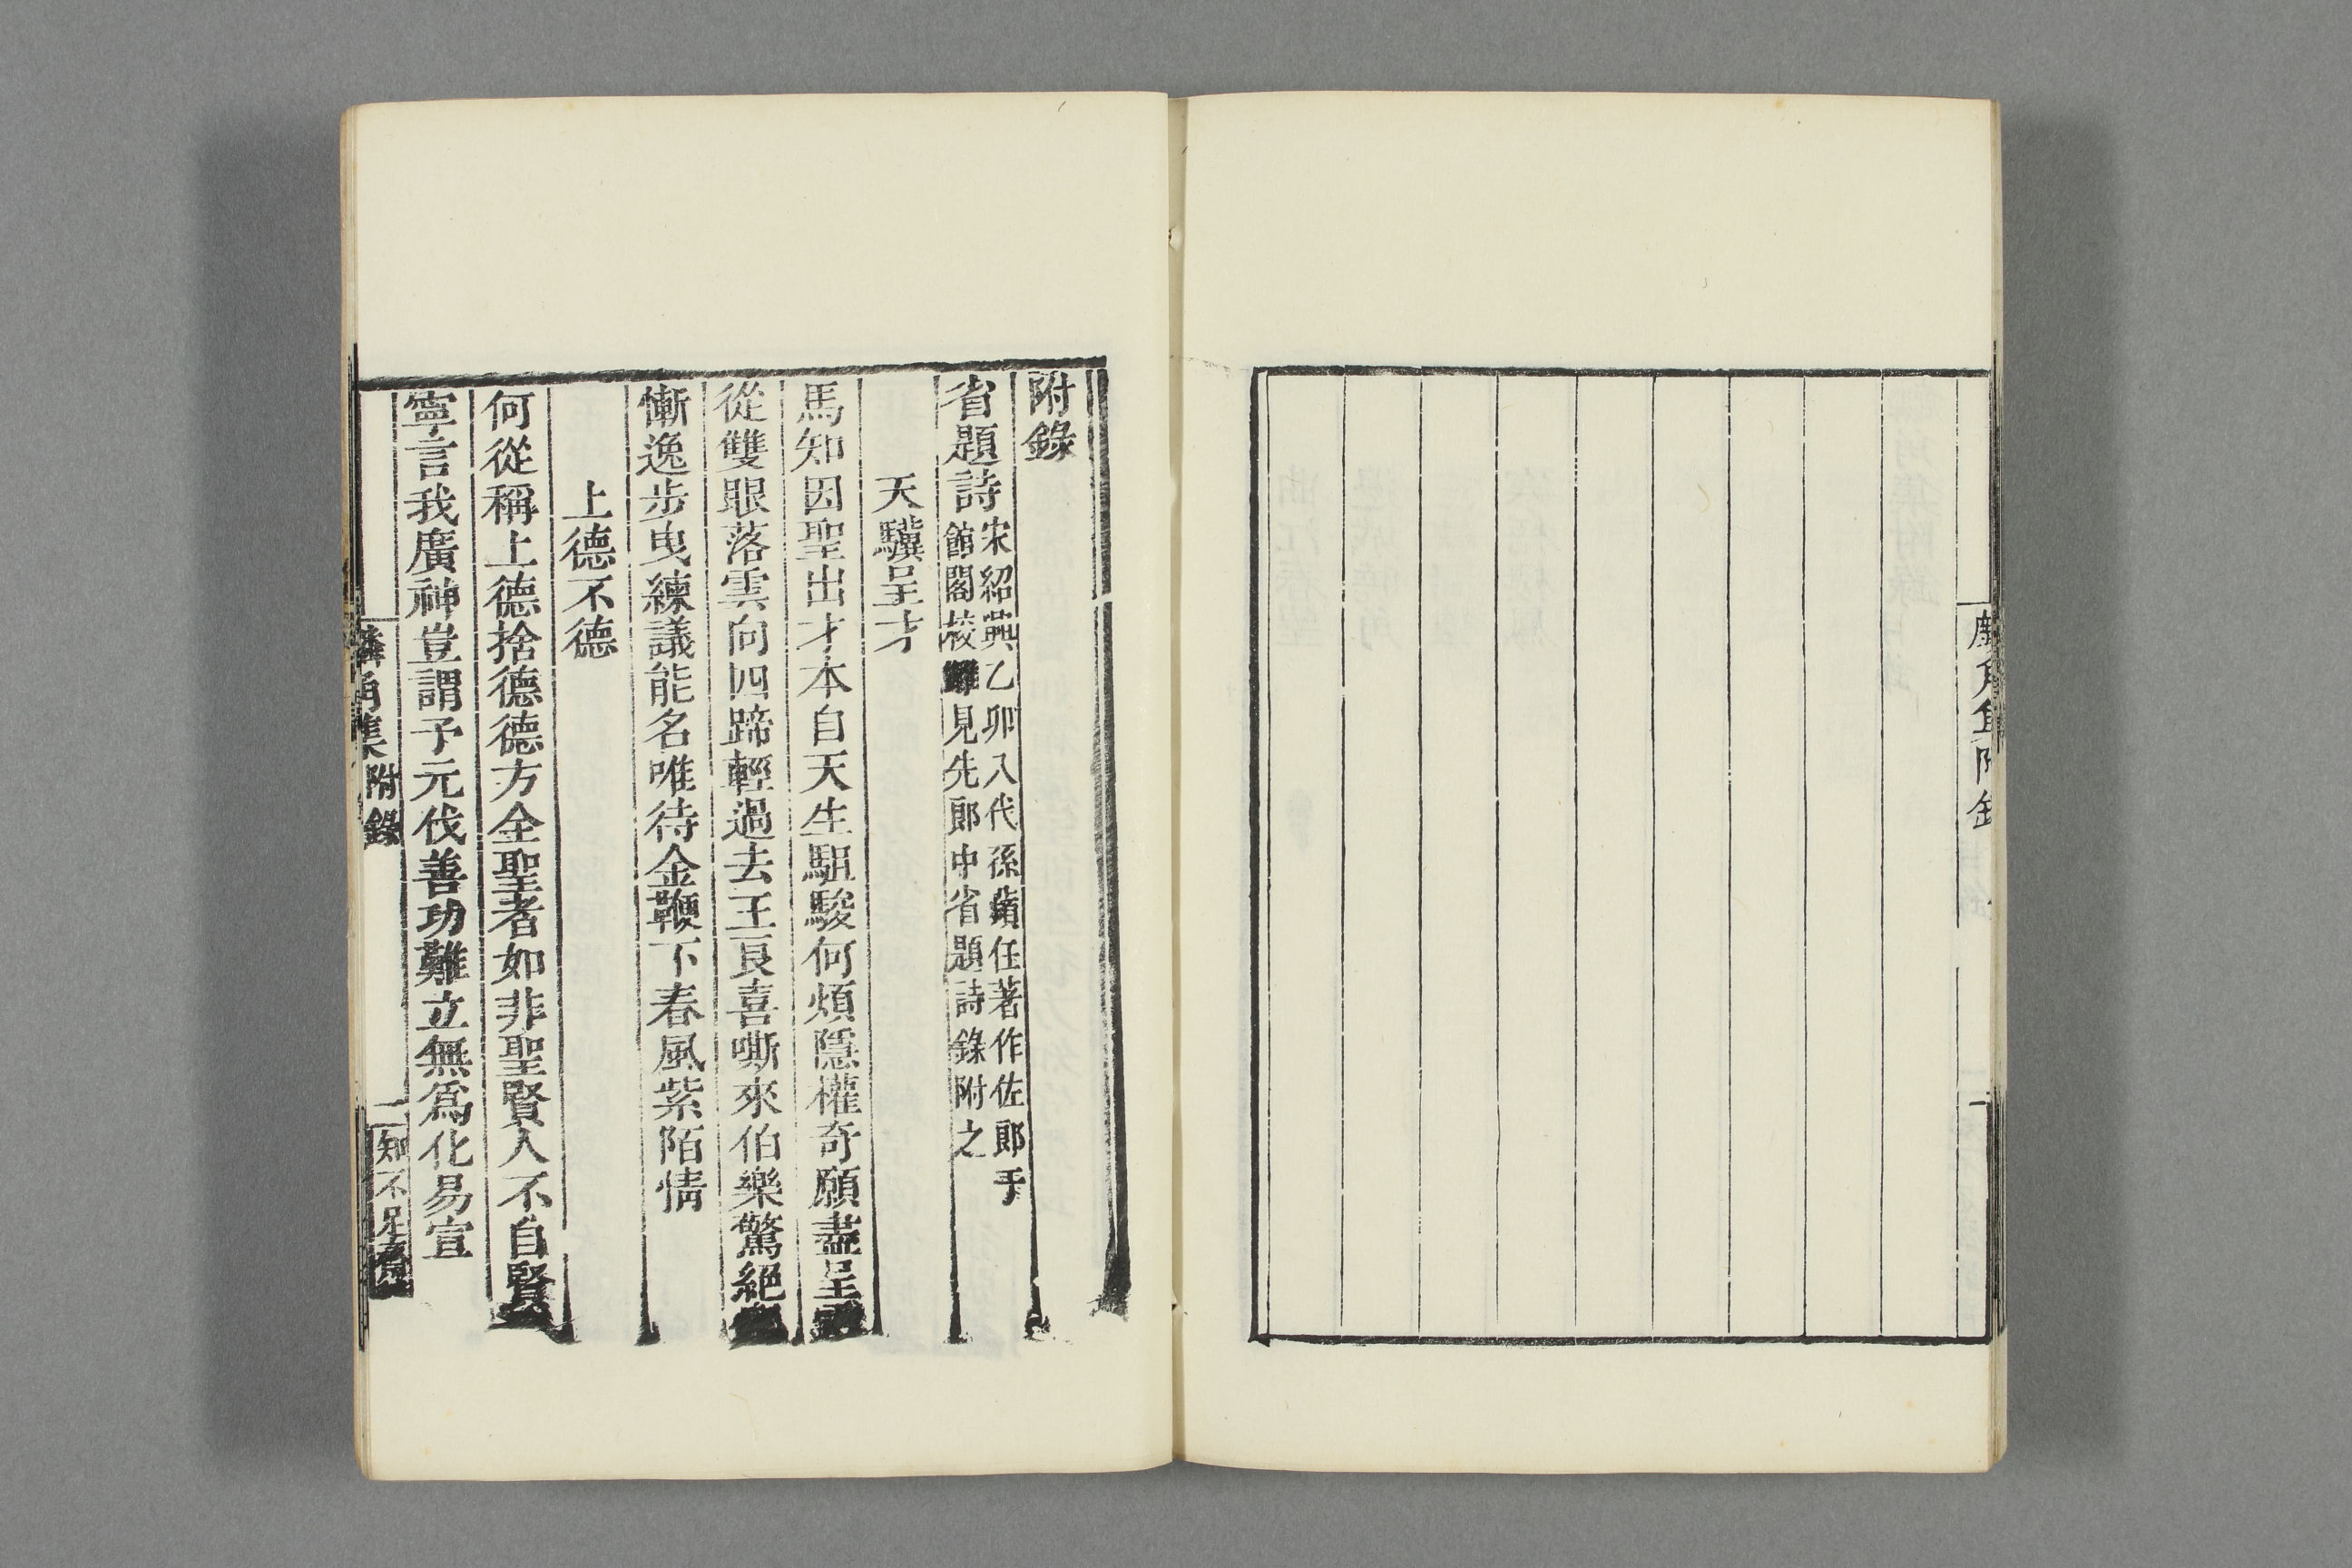 附錄
省題詩 宋紹興乙卯八代孫蘋任著作佐郎于
館閣校讎見先郎中省題詩錄附之
天驥呈才
馬知因聖出才本自天生駔駿何煩隱權奇願盡呈
從雙眼落雲向四蹄輕過去王良喜嘶來伯樂驚絕
慚逸步曳練議能名唯待金鞭下春風紫陌情
上德不德
何從稱上德捨德德方全聖者如非聖賢人不自賢
寧言我廣神豈謂予元伐善功難立無爲化易宣
麟角集 附錄 一 知不足齋